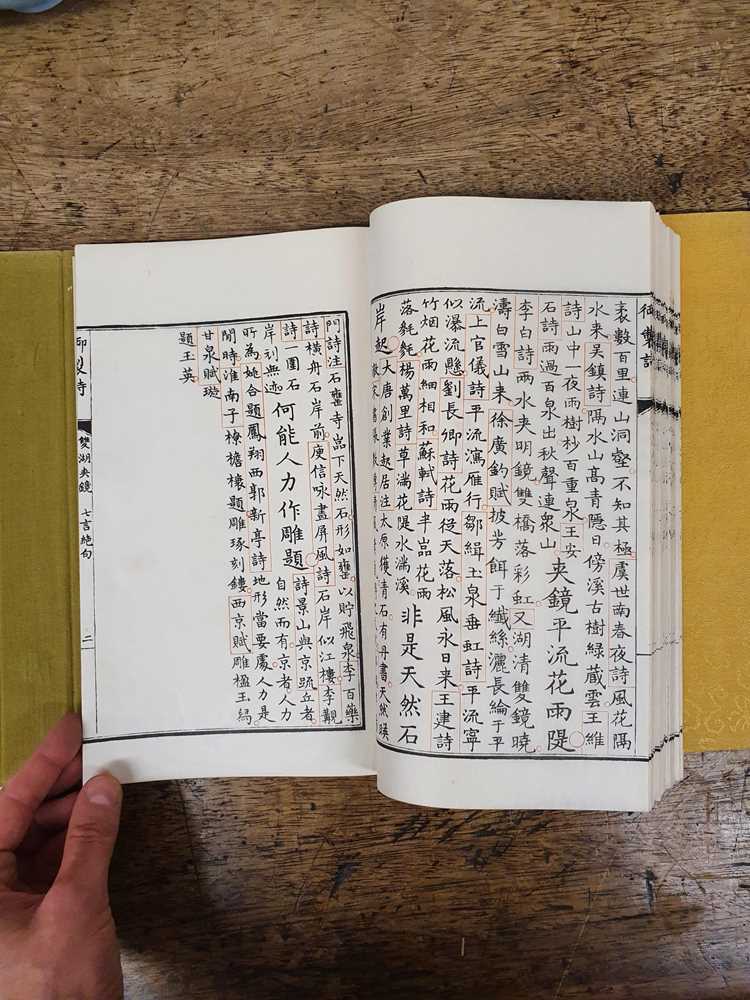 袤數百里連山洞壑不知其極虞世南春夜詩風花隔
水来吳鎮詩隔水山髙青隱日傍溪古樹緑蔵雲王維
詩山中一夜雨樹杪百重泉王安
石詩雨過百泉出秋聲連衆山
夾鏡平流花雨隄
李白詩兩水夾明鏡雙橋落彩虹又湖清雙鏡曉
濤白雪山来徐廣鈞賦披芳餌于纎絲灑長綸于平
流上官儀詩平流瀉雁行鄒緝玉泉垂虹詩平流寧
似瀑流懸劉長卿詩花雨從天落松風永日来王建詩
竹烟花雨細相和蘇軾詩半嵓花雨
落毿毿楊萬里詩草滿花隄水滿溪
非是天然石
岸起
大唐創業起居注太原獲青石有丹書天然暎
門詩注石罋寺嵓下天然石形如罋以貯飛泉李百藥
詩橫舟石岸前庾信咏畫屏風詩石岸似江樓李觀
詩一圍石
岸刓無迹
何能人力作雕題
詩景山與京䟽丘者
自然而有京者人力
所為姚合題鳳翔西郭新亭詩地形當要處人力是
閒時淮南子橑檐榱題雕琢刻鏤西京賦雕楹玉舄
甘泉賦璇
題玉英
御製詩
雙湖夾鏡 七言絶句
二
御製詩